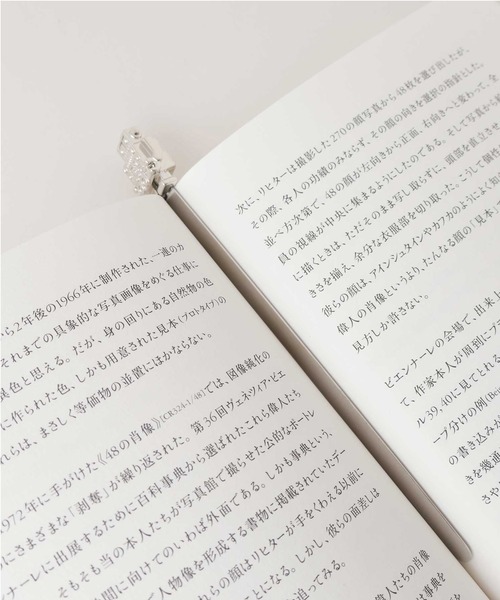 から2年後の1966年に制作された、一連のカ
それまでの具象的な写真画像をめぐる仕事に
異色と思える。だが、身の回りにある自然物の色
に作られた色、しかも用意された見本(プロトタイプ)の
れらは、まさしく等価物の並置にほかならない。
1972年に手がけた《48の肖像》(CR324-1/48)では、図像純化の
にさまざまな「剥奪」が繰り返された。第36回ヴェネツィア・ビエ
ンナーレに出展するために百科事典から選ばれたこれら偉人たち
そもそも当の本人たちが写真館で撮らせた公的なポートレ
間に向けてのいわば外面である。しかも事典という、
人物像を形成する書物に掲載されていたデー
れらの顔はリヒターが手をくわえる以前に
ことになる。しかし、彼らの面差しは
迫ってみる。
次に、リヒターは撮影した270の顔写真から48枚を選び出したが、
その際、各人の功績のみならず、その顔の向きを選択の指針とした。
並べ方次第で、48の顔が左向きから正面、右向きへと変わって、全
員の視線が中央に集まるようにしたのである。そして写真から
に描くときは、ただそのまま写し取らずに、頭部を
きさを揃え、余分な衣服部を切り取った。こうして個性
彼らの顔は、アインシュタインやカフカのようによく知
偉人の肖像というより、たんなる顔の「見本
見方しか許さない。
ビエンナーレの会場で、出来
て、作家本人が周到に
ル39, 40に見てとれ
ープ分けの例(Be
の書き込みが
きを幾通
さら
偉人たちの肖像
は事典を